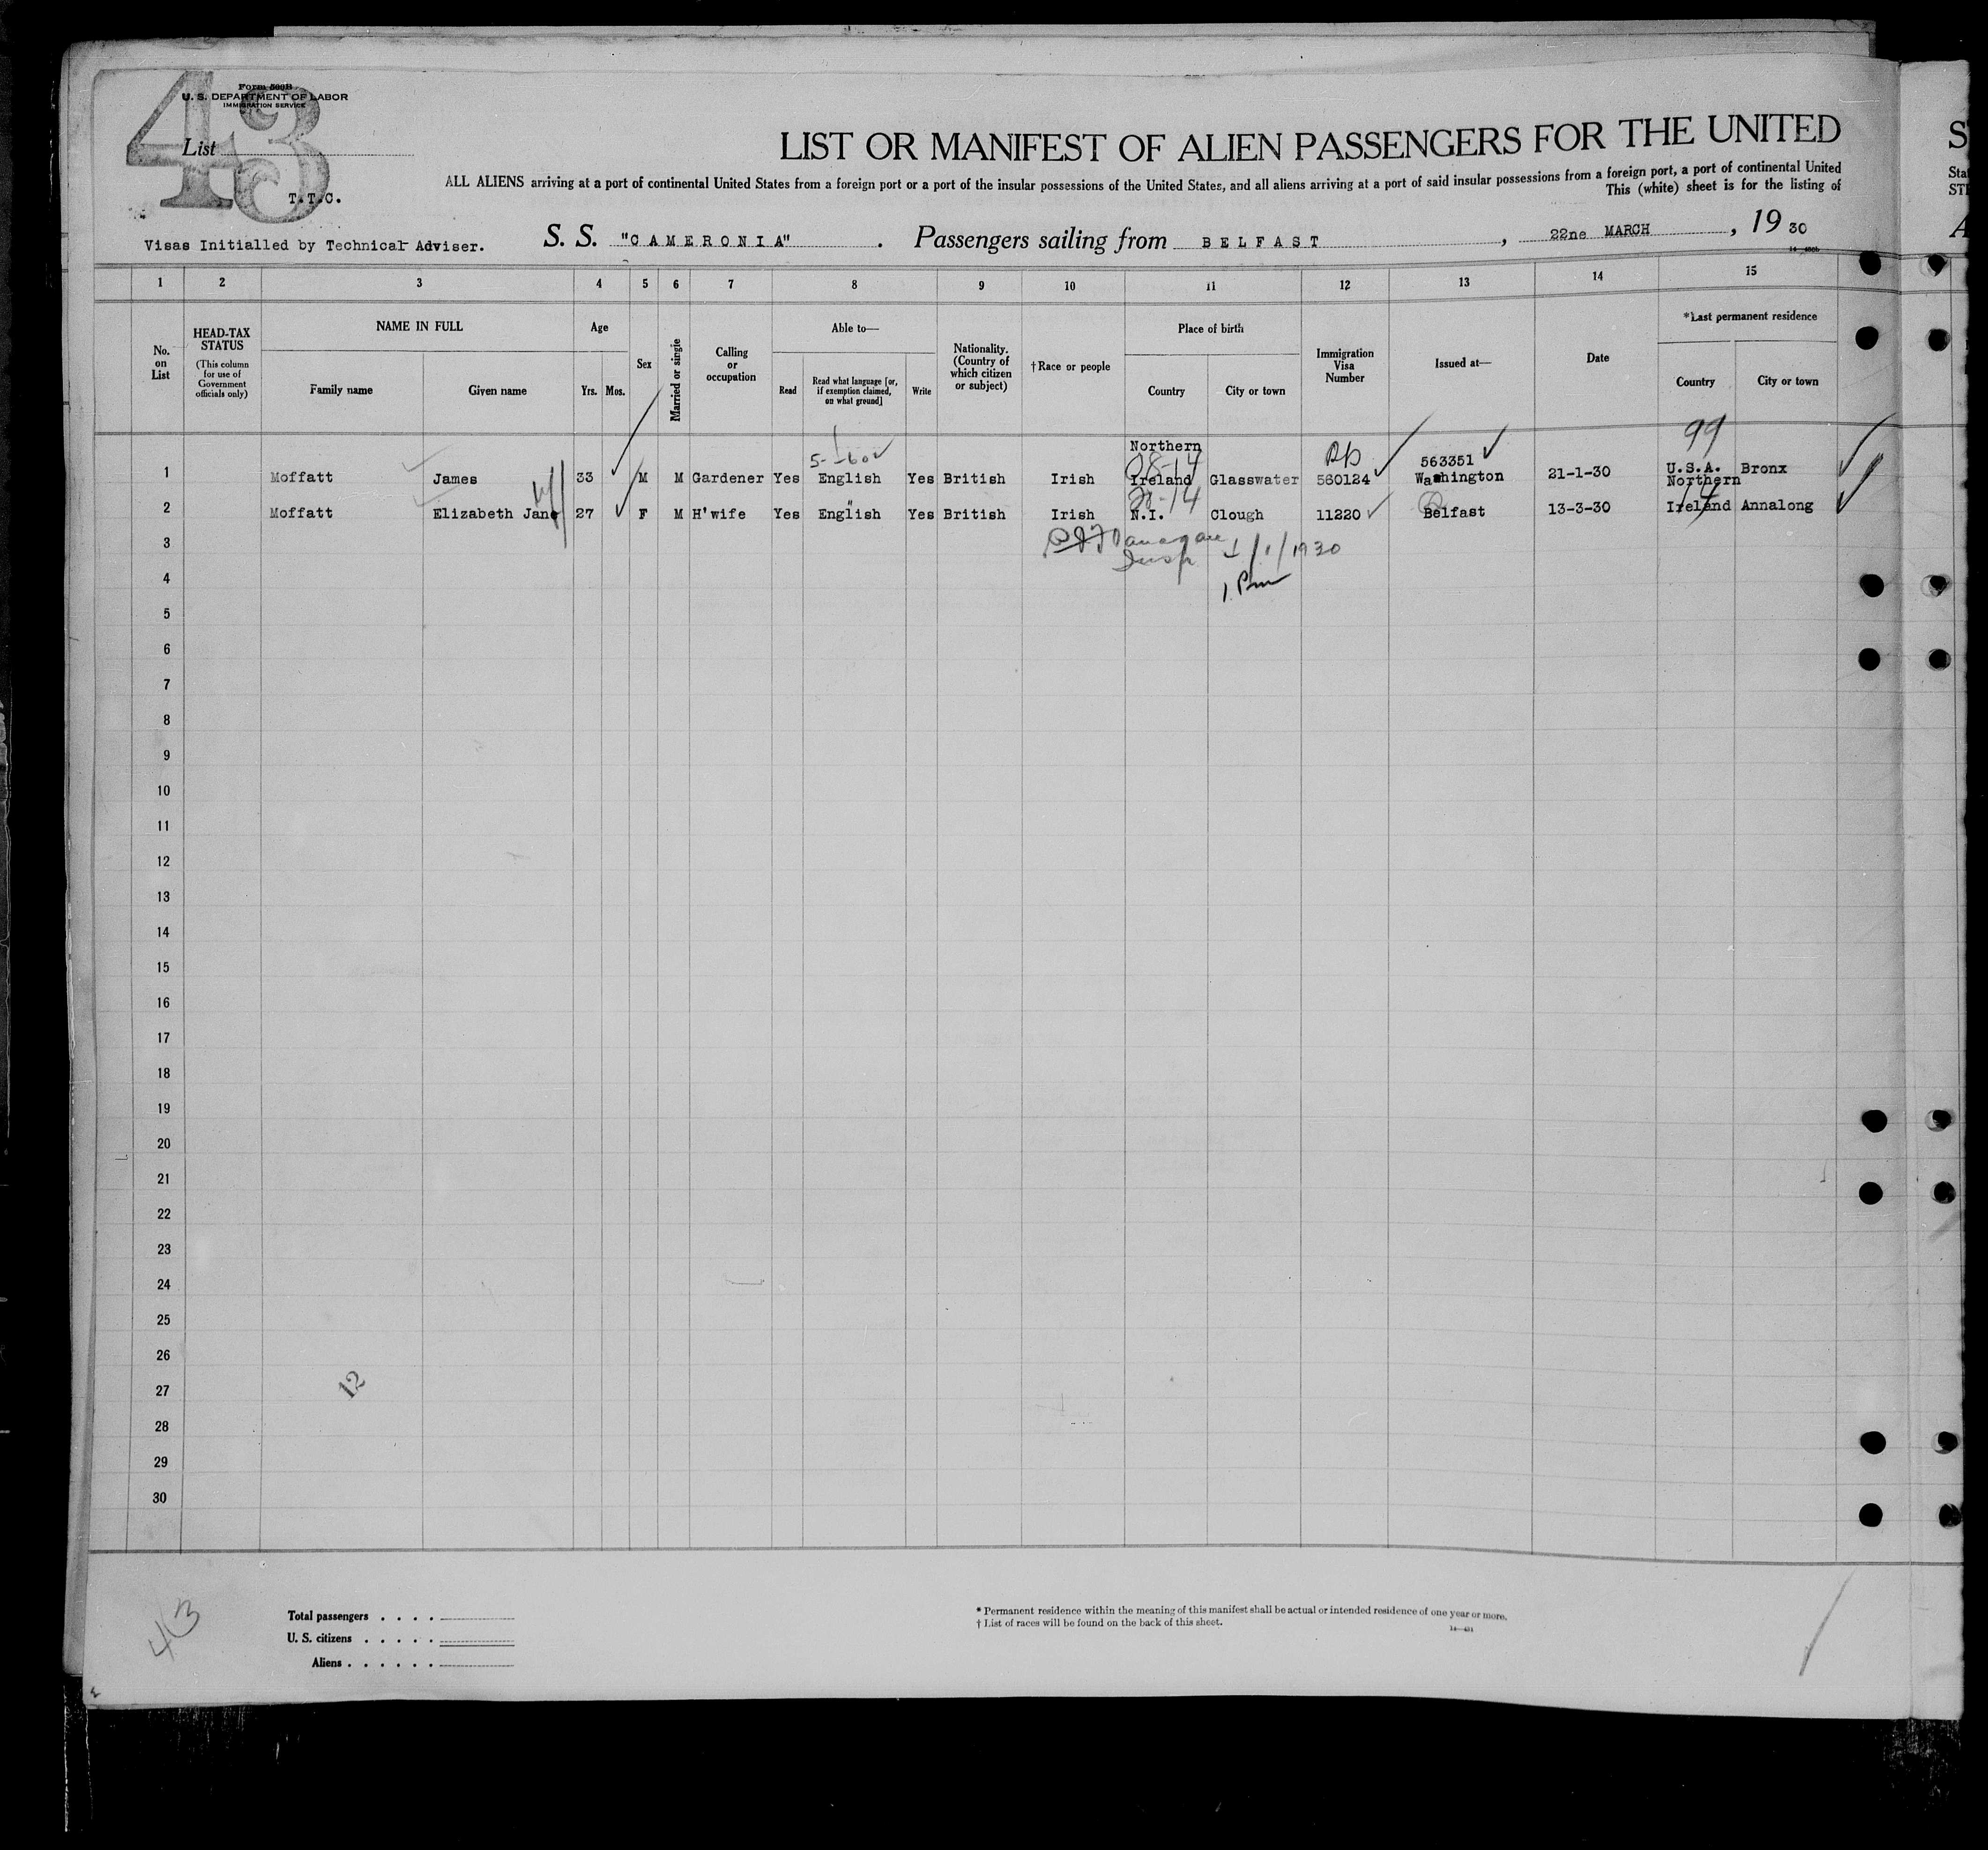 43
Form 500B
U. S. DEPARTMENT OF LABOR
IMMIGRATION SERVICE
List
T.T.C.
Visas Initialled by Technical Adviser.
LIST OR MANIFEST OF ALIEN PASSENGERS FOR THE UNITED
ALL ALIENS arriving at a port of continental United States from a foreign port or a port of the insular possessions of the United States, and all aliens arriving at a port of said insular possessions from a foreign port, a port of continental United
This (white) sheet is for the listing of
S. S. "CAMERONIA" . Passengers sailing from BELFAST , 22ne MARCH , 19 30
1 2 3 4 5 6 7 8 9 10 11 12 13 14 15
No. on List
HEAD-TAX STATUS
(This column for use of Government officials only)
NAME IN FULL
Family name Given name
Age
Yrs. Mos.
Sex
Married or single
Calling or occupation
Able to—
Read Read what language [or, if exemption claimed, on what ground] Write
Nationality. (Country of which citizen or subject)
†Race or people
Place of birth
Country City or town
Immigration Visa Number
Issued at—
Date
*Last permanent residence
Country City or town
99
Northern
28-14
563351
1 Moffatt James 33 M M Gardener Yes English Yes British Irish Ireland Glasswater 560124 Washington 21-1-30 U.S.A. Bronx
Northern
2 Moffatt Elizabeth Jane 27 F M H'wife Yes English Yes British Irish N.I. Clough 11220 Belfast 13-3-30 Ireland Annalong
3
Insp 1930
4
1 Pm
5
6
7
8
9
10
11
12
13
14
15
16
17
18
19
20
21
22
23
24
25
26
27
12
28
29
30
43
Total passengers . . . .
U. S. citizens . . . . .
Aliens . . . . . .
* Permanent residence within the meaning of this manifest shall be actual or intended residence of one year or more.
† List of races will be found on the back of this sheet.